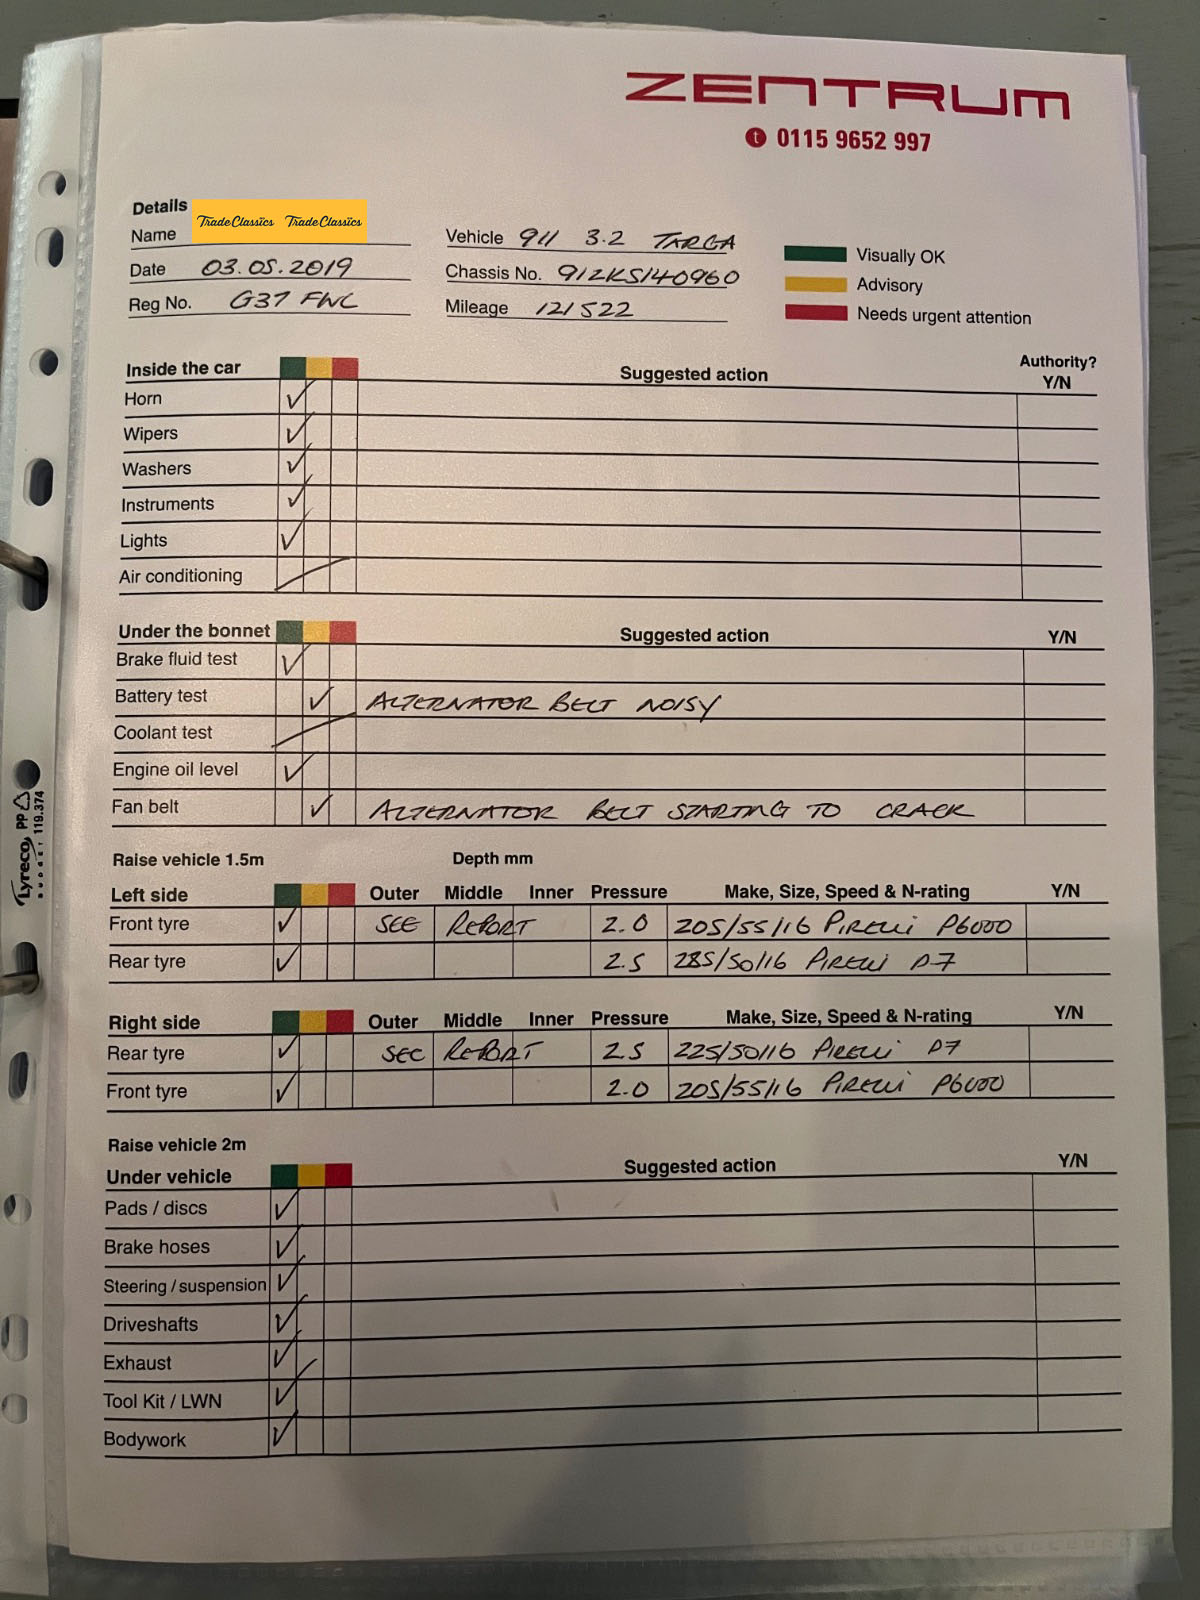 ZENTRUM
t 0115 9652 997
Details
Name TradeClassics TradeClassics
Date 03.05.2019
Reg No. G37 FWC
Vehicle 911 3.2 TARGA
Chassis No. 912KS140960
Mileage 121522
Visually OK
Advisory
Needs urgent attention
Inside the car Suggested action Authority? Y/N
Horn ✓
Wipers ✓
Washers ✓
Instruments ✓
Lights ✓
Air conditioning
Under the bonnet Suggested action Y/N
Brake fluid test ✓
Battery test ✓ ALTERNATOR BELT NOISY
Coolant test
Engine oil level ✓
Fan belt ✓ ALTERNATOR BELT STARTING TO CRACK
Raise vehicle 1.5m Depth mm
Left side Outer Middle Inner Pressure Make, Size, Speed & N-rating Y/N
Front tyre ✓ SEE REPORT 2.0 205/55/16 PIRELLI P6000
Rear tyre ✓ 2.5 225/50/16 PIRELLI P7
Right side Outer Middle Inner Pressure Make, Size, Speed & N-rating Y/N
Rear tyre ✓ SEE REPORT 2.5 225/50/16 PIRELLI P7
Front tyre ✓ 2.0 205/55/16 PIRELLI P6000
Raise vehicle 2m
Under vehicle Suggested action Y/N
Pads / discs ✓
Brake hoses ✓
Steering / suspension ✓
Driveshafts ✓
Exhaust ✓
Tool Kit / LWN ✓
Bodywork ✓
Lyreco PP
BUDGET 119.374